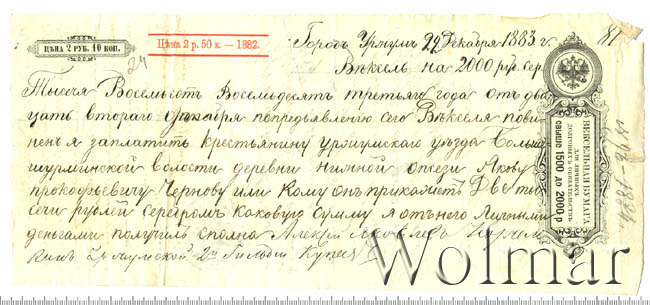 ЦѢНА 2 РУБ. 10 КОП.
24
Цѣна 2 р. 50 к. — 1882.
Городъ Уржумъ 22 Декабря 1883 г.
81
Вѣксель на 2000 руб. Сер.
Тысяча Восемьсотъ Восемьдесятъ третьяго года отъ два
цать втораго попредъявлению сего Вѣкселя пови
ненъ я заплатить крестьянину уржумскаго уѣзда Больше
шурминской Волости деревни Якову
прокофьевичу Чернову или Кому онъ прикажетъ Две ты
сечи рублей Серебромъ каковую сумму я отъ него Личными
деньгами получилъ сполна Алексѣй Яковлевъ
2й Гильдии Купецъ
ВЕКСЕЛЬНАЯ БУМАГА
ДЛЯ ЛИЧНЫХЪ
ДОЛГОВЫХЪ ОБЯЗАТЕЛЬСТВЪ
свыше 1500 до 2000 р
Wolmar